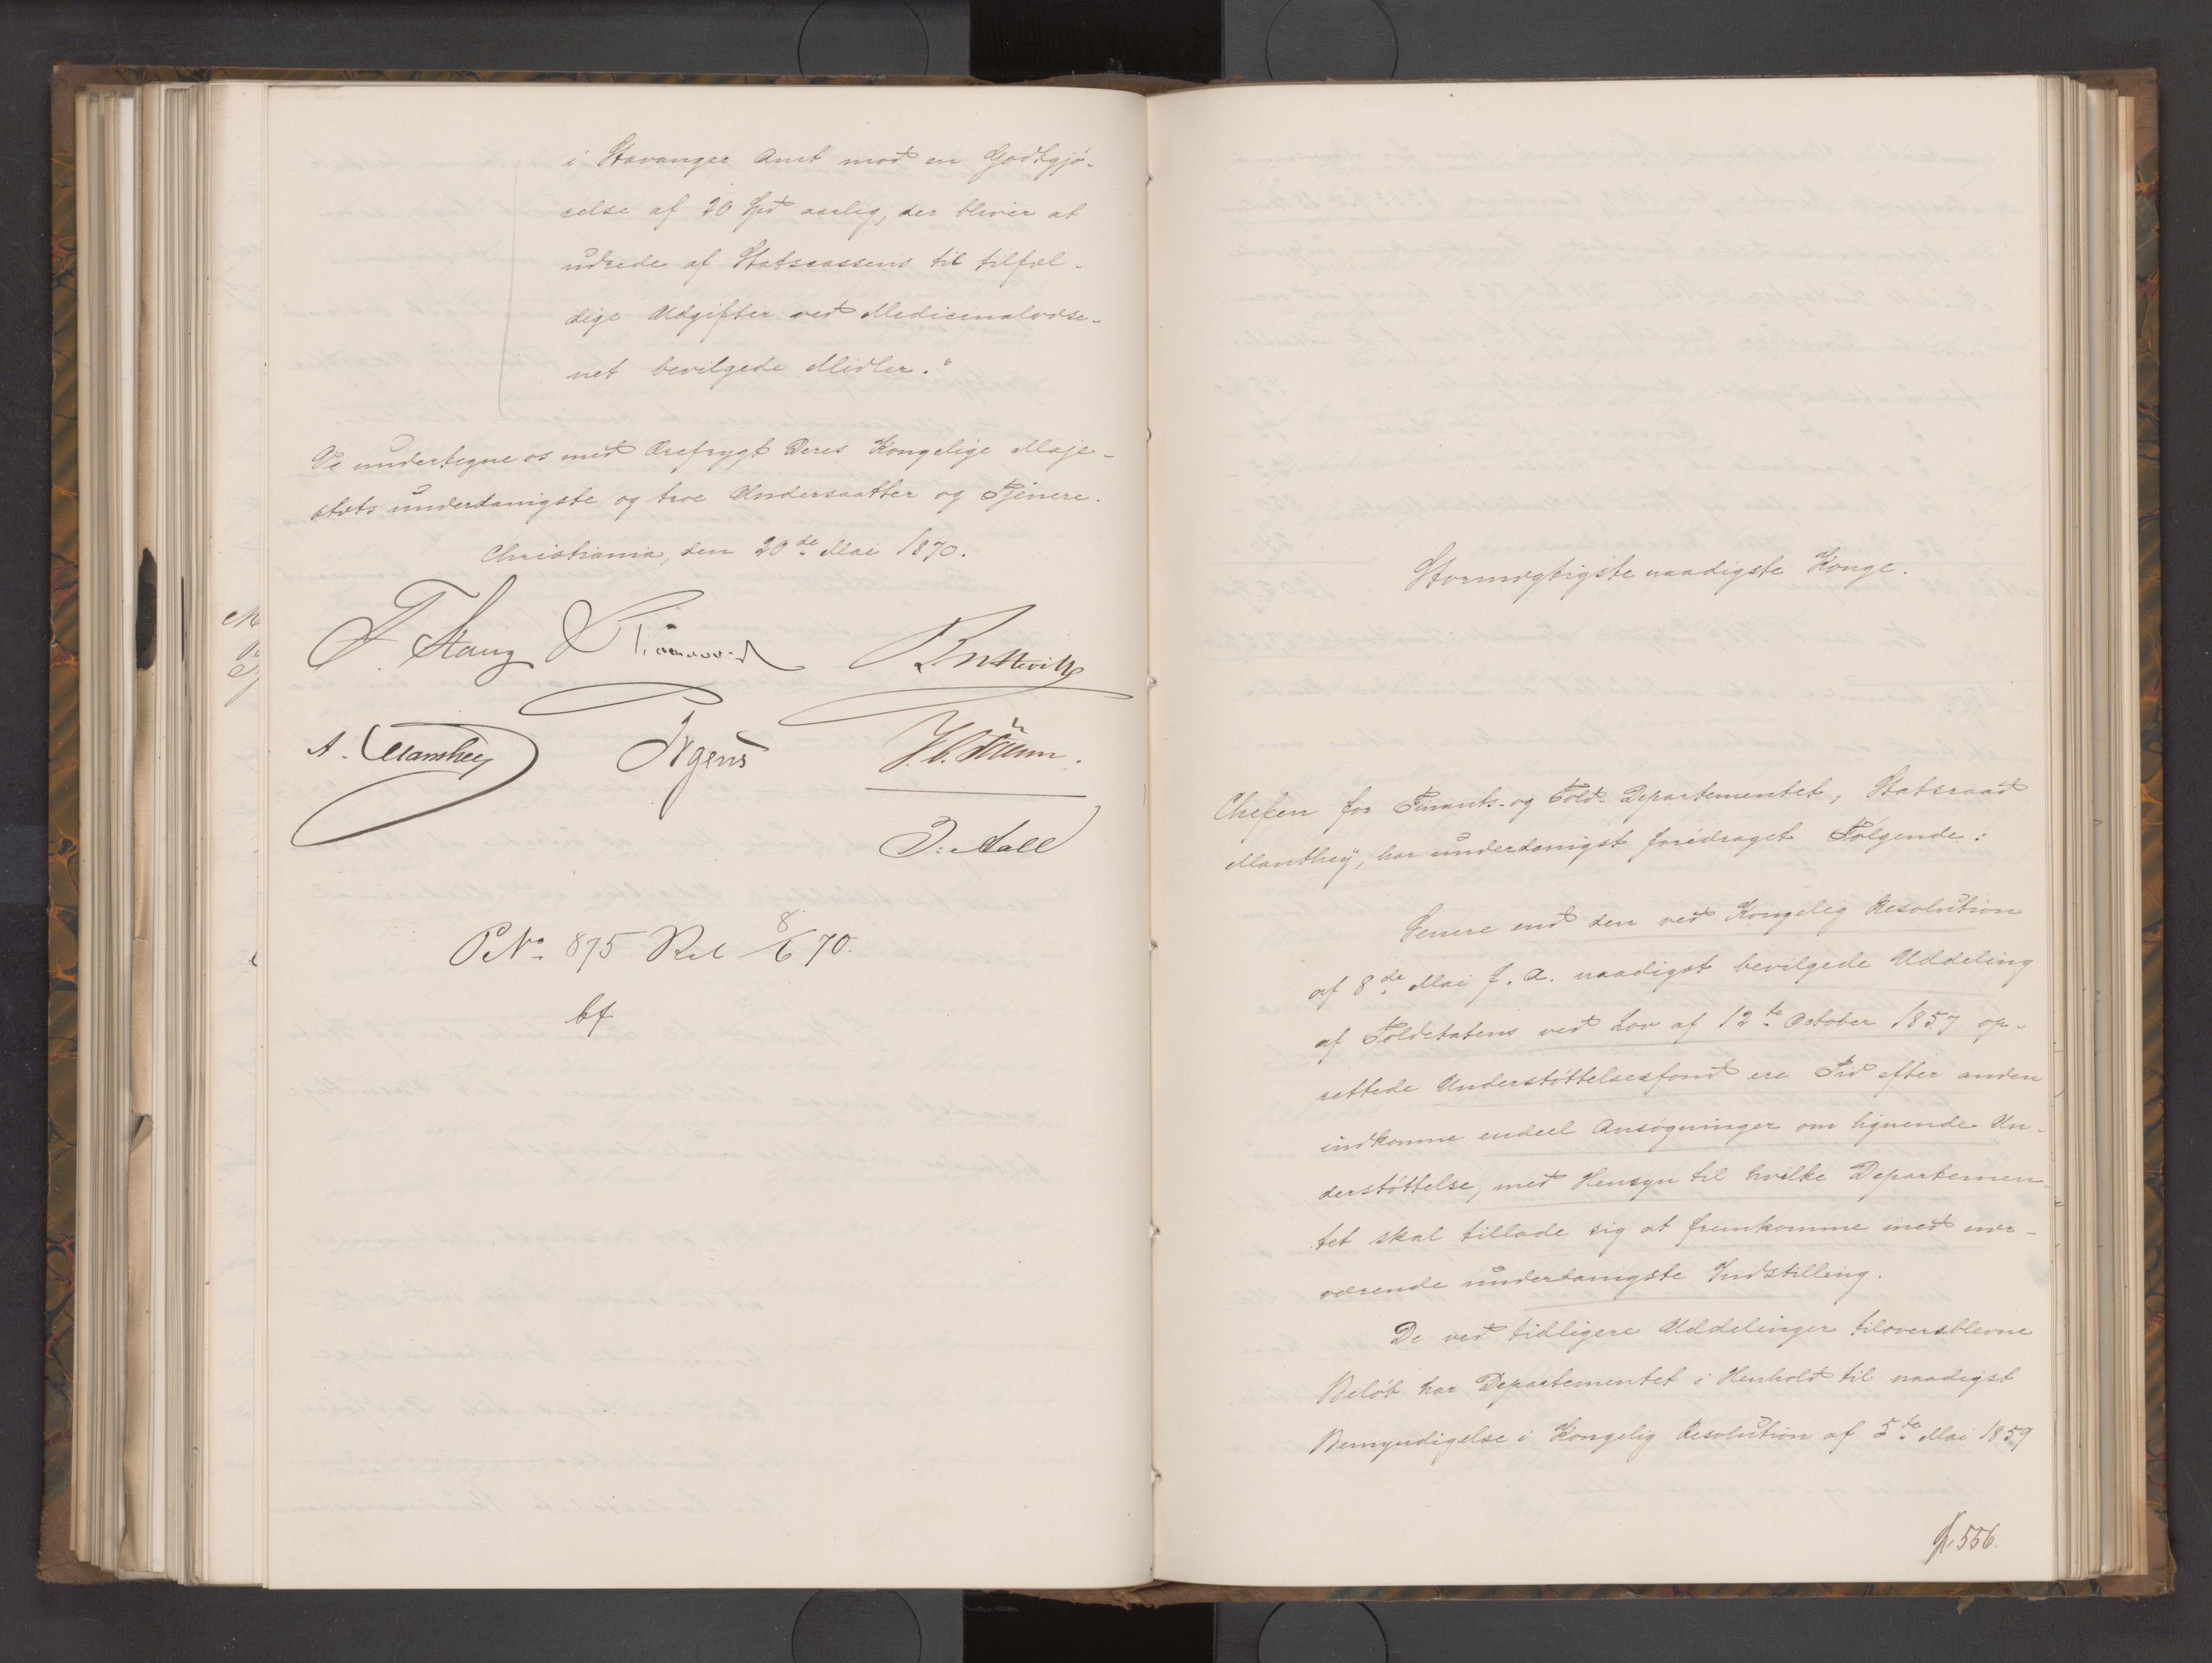 i Stavanger Amt mod en Godtgjö-
relse af 20 Spd aarlig, der bliver at
udrede af Statscassens til tilfæl-
dige Udgifter ved Medicinalvæse-
net bevilgede Midler."
Vi undertegne os med Ærefrygt Deres Kongelige Maje-
stæts underdanigste og troe Undersaatter og Tjenere.
Christiania, den 20de Mai 1870.
F. Stang
A. Manthey Irgens
J. Aall
PNo 875 Ref 8/6 70.
bf
Stormægtigste naadigste Konge.
Chefen for Finants- og Told-Departementet, Statsraad
Manthey, har underdanigst foredraget Følgende:
Senere end den ved Kongelig Resolution
af 8de Mai f. A. naadigst bevilgede Uddeling
af Toldetatens ved Lov af 12te October 1857 op-
rettede Understöttelsesfond ere Tid efter anden
indkomne endeel Ansögninger om lignende Un-
derstöttelse, med Hensyn til hvilke Departemen-
tet skal tillade sig at fremkomme med nær-
værende underdanigste Indstilling.
De ved tidligere Uddelinger tiloversblevne
Belöb har Departementet i Henhold til naadigst
Bemyndigelse i Kongelig Resolution af 5te Mai 1859
556.